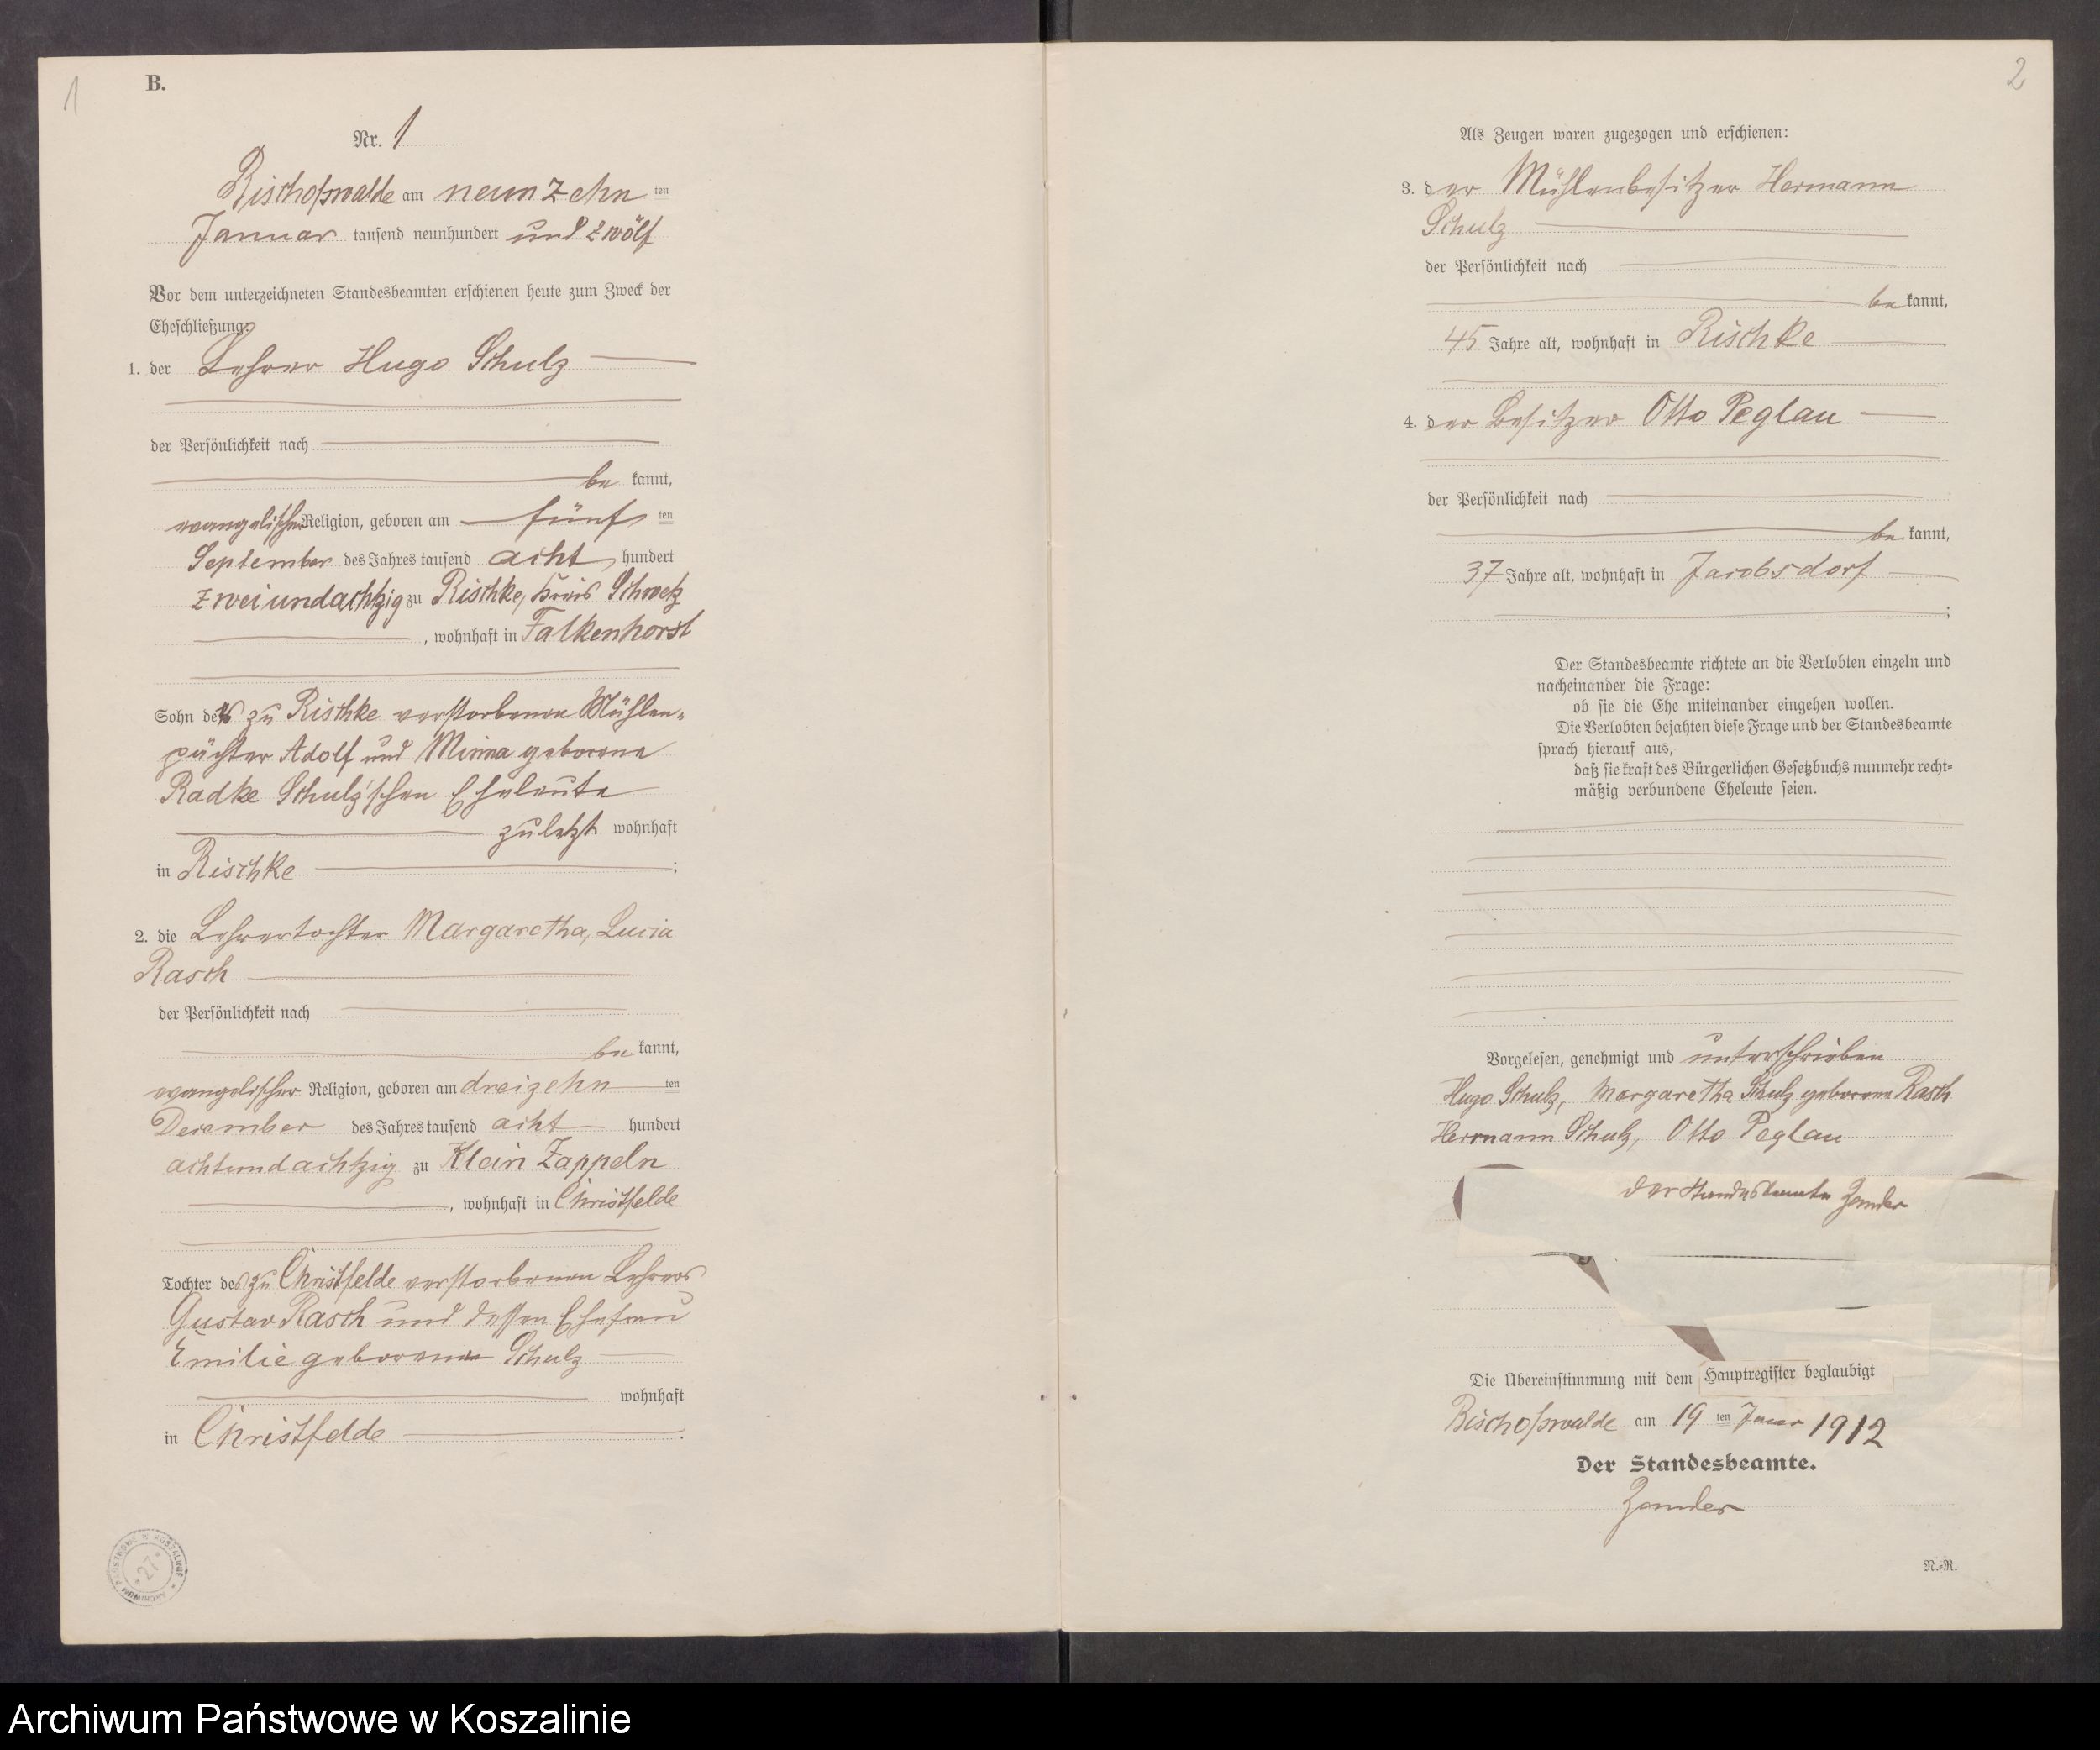 1
B.
Nr. 1
Bischofswalde am neunzehn ten
Januar tausend neunhundert und zwölf
Vor dem unterzeichneten Standesbeamten erschienen heute zum Zweck der
Eheschließung:
1. der Lehrer Hugo Schulz
der Persönlichkeit nach
be kannt,
evangelischer Religion, geboren am fünf ten
September des Jahres tausend acht hundert
zweiundachtzig zu Rischke, Kreis Schwetz
, wohnhaft in Falkenhorst
Sohn der zu Rischke verstorbenen Mühlen-
pächter Adolf und Minna geborene
Radke Schulz'schen Eheleute
zuletzt wohnhaft
in Rischke ;
2. die Lehrertochter Margaretha, Lucia
Rasch
der Persönlichkeit nach
be kannt,
evangelischer Religion, geboren am dreizehn ten
Dezember des Jahres tausend acht hundert
achtundachtzig zu Klein Zappeln
, wohnhaft in Christfelde
Tochter des zu Christfelde verstorbenen Lehrers
Gustav Rasch und dessen Ehefrau
Emilie geborene Schulz
wohnhaft
in Christfelde .
ARCHIWUM PAŃSTWOWE W KOSZALINIE * 27 *
2
Als Zeugen waren zugezogen und erschienen:
3. der Mühlenbesitzer Hermann
Schulz
der Persönlichkeit nach
be kannt,
45 Jahre alt, wohnhaft in Rischke
4. der Besitzer Otto Peglau
der Persönlichkeit nach
be kannt,
37 Jahre alt, wohnhaft in Jacobsdorf
;
Der Standesbeamte richtete an die Verlobten einzeln und
nacheinander die Frage:
ob sie die Ehe miteinander eingehen wollen.
Die Verlobten bejahten diese Frage und der Standesbeamte
sprach hierauf aus,
daß sie kraft des Bürgerlichen Gesetzbuchs nunmehr recht-
mäßig verbundene Eheleute seien.
Vorgelesen, genehmigt und unterschrieben
Hugo Schulz, Margaretha Schulz geborene Rasch
Hermann Schulz, Otto Peglau
Der Standesbeamte Zander
Die Übereinstimmung mit dem Hauptregister beglaubigt
Bischofswalde am 19 ten Januar 1912
Der Standesbeamte.
Zander
N.-R.
Archiwum Państwowe w Koszalinie